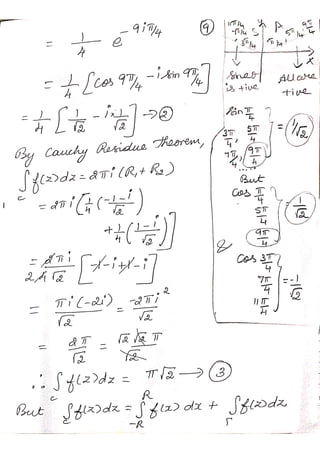 = 1/4 e^{-9iπ/4}
= 1/4 [cos 9π/4 - i sin 9π/4]
= 1/4 [1/√2 - i×1/√2] → ②
By Cauchy Residue Theorem,
∫_c f(z)dz = 2πi (R₁ + R₂)
= 2πi [1/4 (-1-i/√2)
+ 1/4 (1-i/√2)]
= 2πi/2·4√2 [-1-i+1-i]
= πi(-2i)/√2 = -2πi²/√2
= 2π/√2 = √2 √2 π/√2
∴ ∫_c f(z)dz = π√2 → ③
But ∫_c f(z)dz = ∫_{-R}^{R} f(x) dx + ∫_Γ f(z)dz
⑨
S A
x
sine is +ive
All are +ive
sin π/4
3π/4, 5π/4
7π/4, 9π/4 } = 1/√2
....
But
cos π/4
5π/4
9π/4 } = 1/√2
&
cos 3π/4
7π/4
11π/4 } = -1/√2